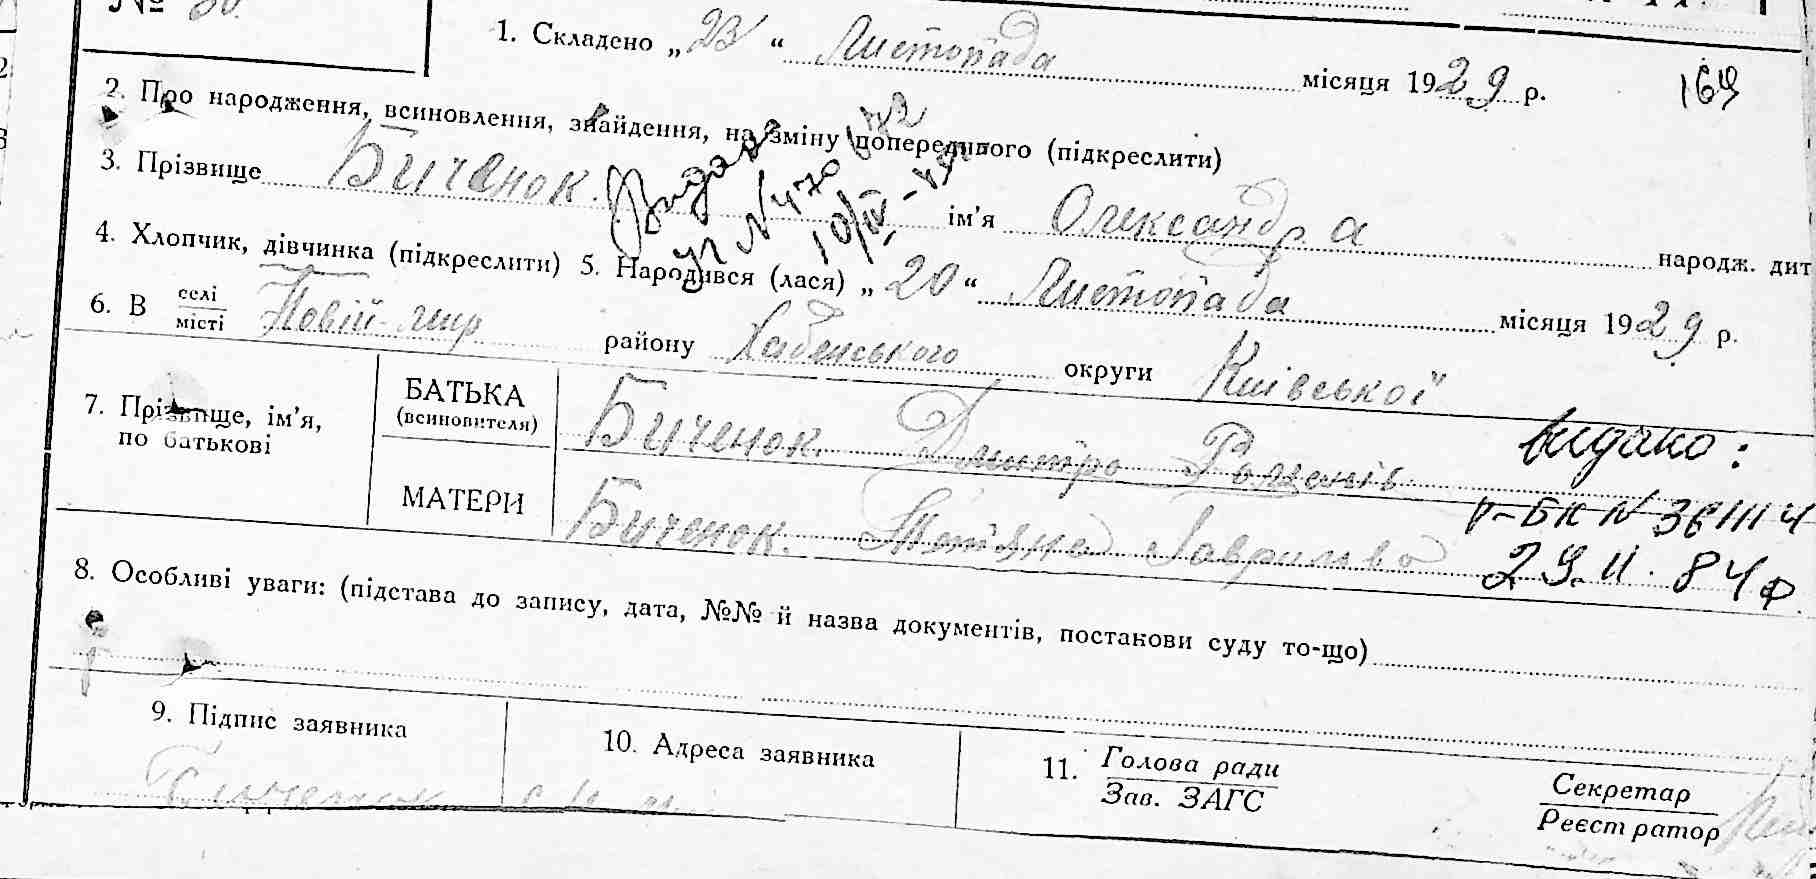 № 30.
1. Складено „23“ Листопада місяця 1929 р.
169
2. Про народження, всиновлення, знайдення, на зміну попереднього (підкреслити)
3. Прізвище Биченок. ім'я Олександра народж. дит
Видано
10/IV
4. Хлопчик, дівчинка (підкреслити) 5. Народився (лася) „20“ Листопада місяця 1929 р.
6. В селі місті Новій-мир району Хабенського округи Київської
7. Прізвище, ім'я, по батькові
БАТЬКА (всиновителя) Биченок. Дмитро
видано:
МАТЕРИ Биченок. Тетяна Гаврилова
V-БК N 361114
29.II.84
8. Особливі уваги: (підстава до запису, дата, №№ й назва документів, постанови суду то-що)
9. Підпис заявника
Биченок
10. Адреса заявника
11. Голова ради
Зав. ЗАГС
Секретар
Реєстратор